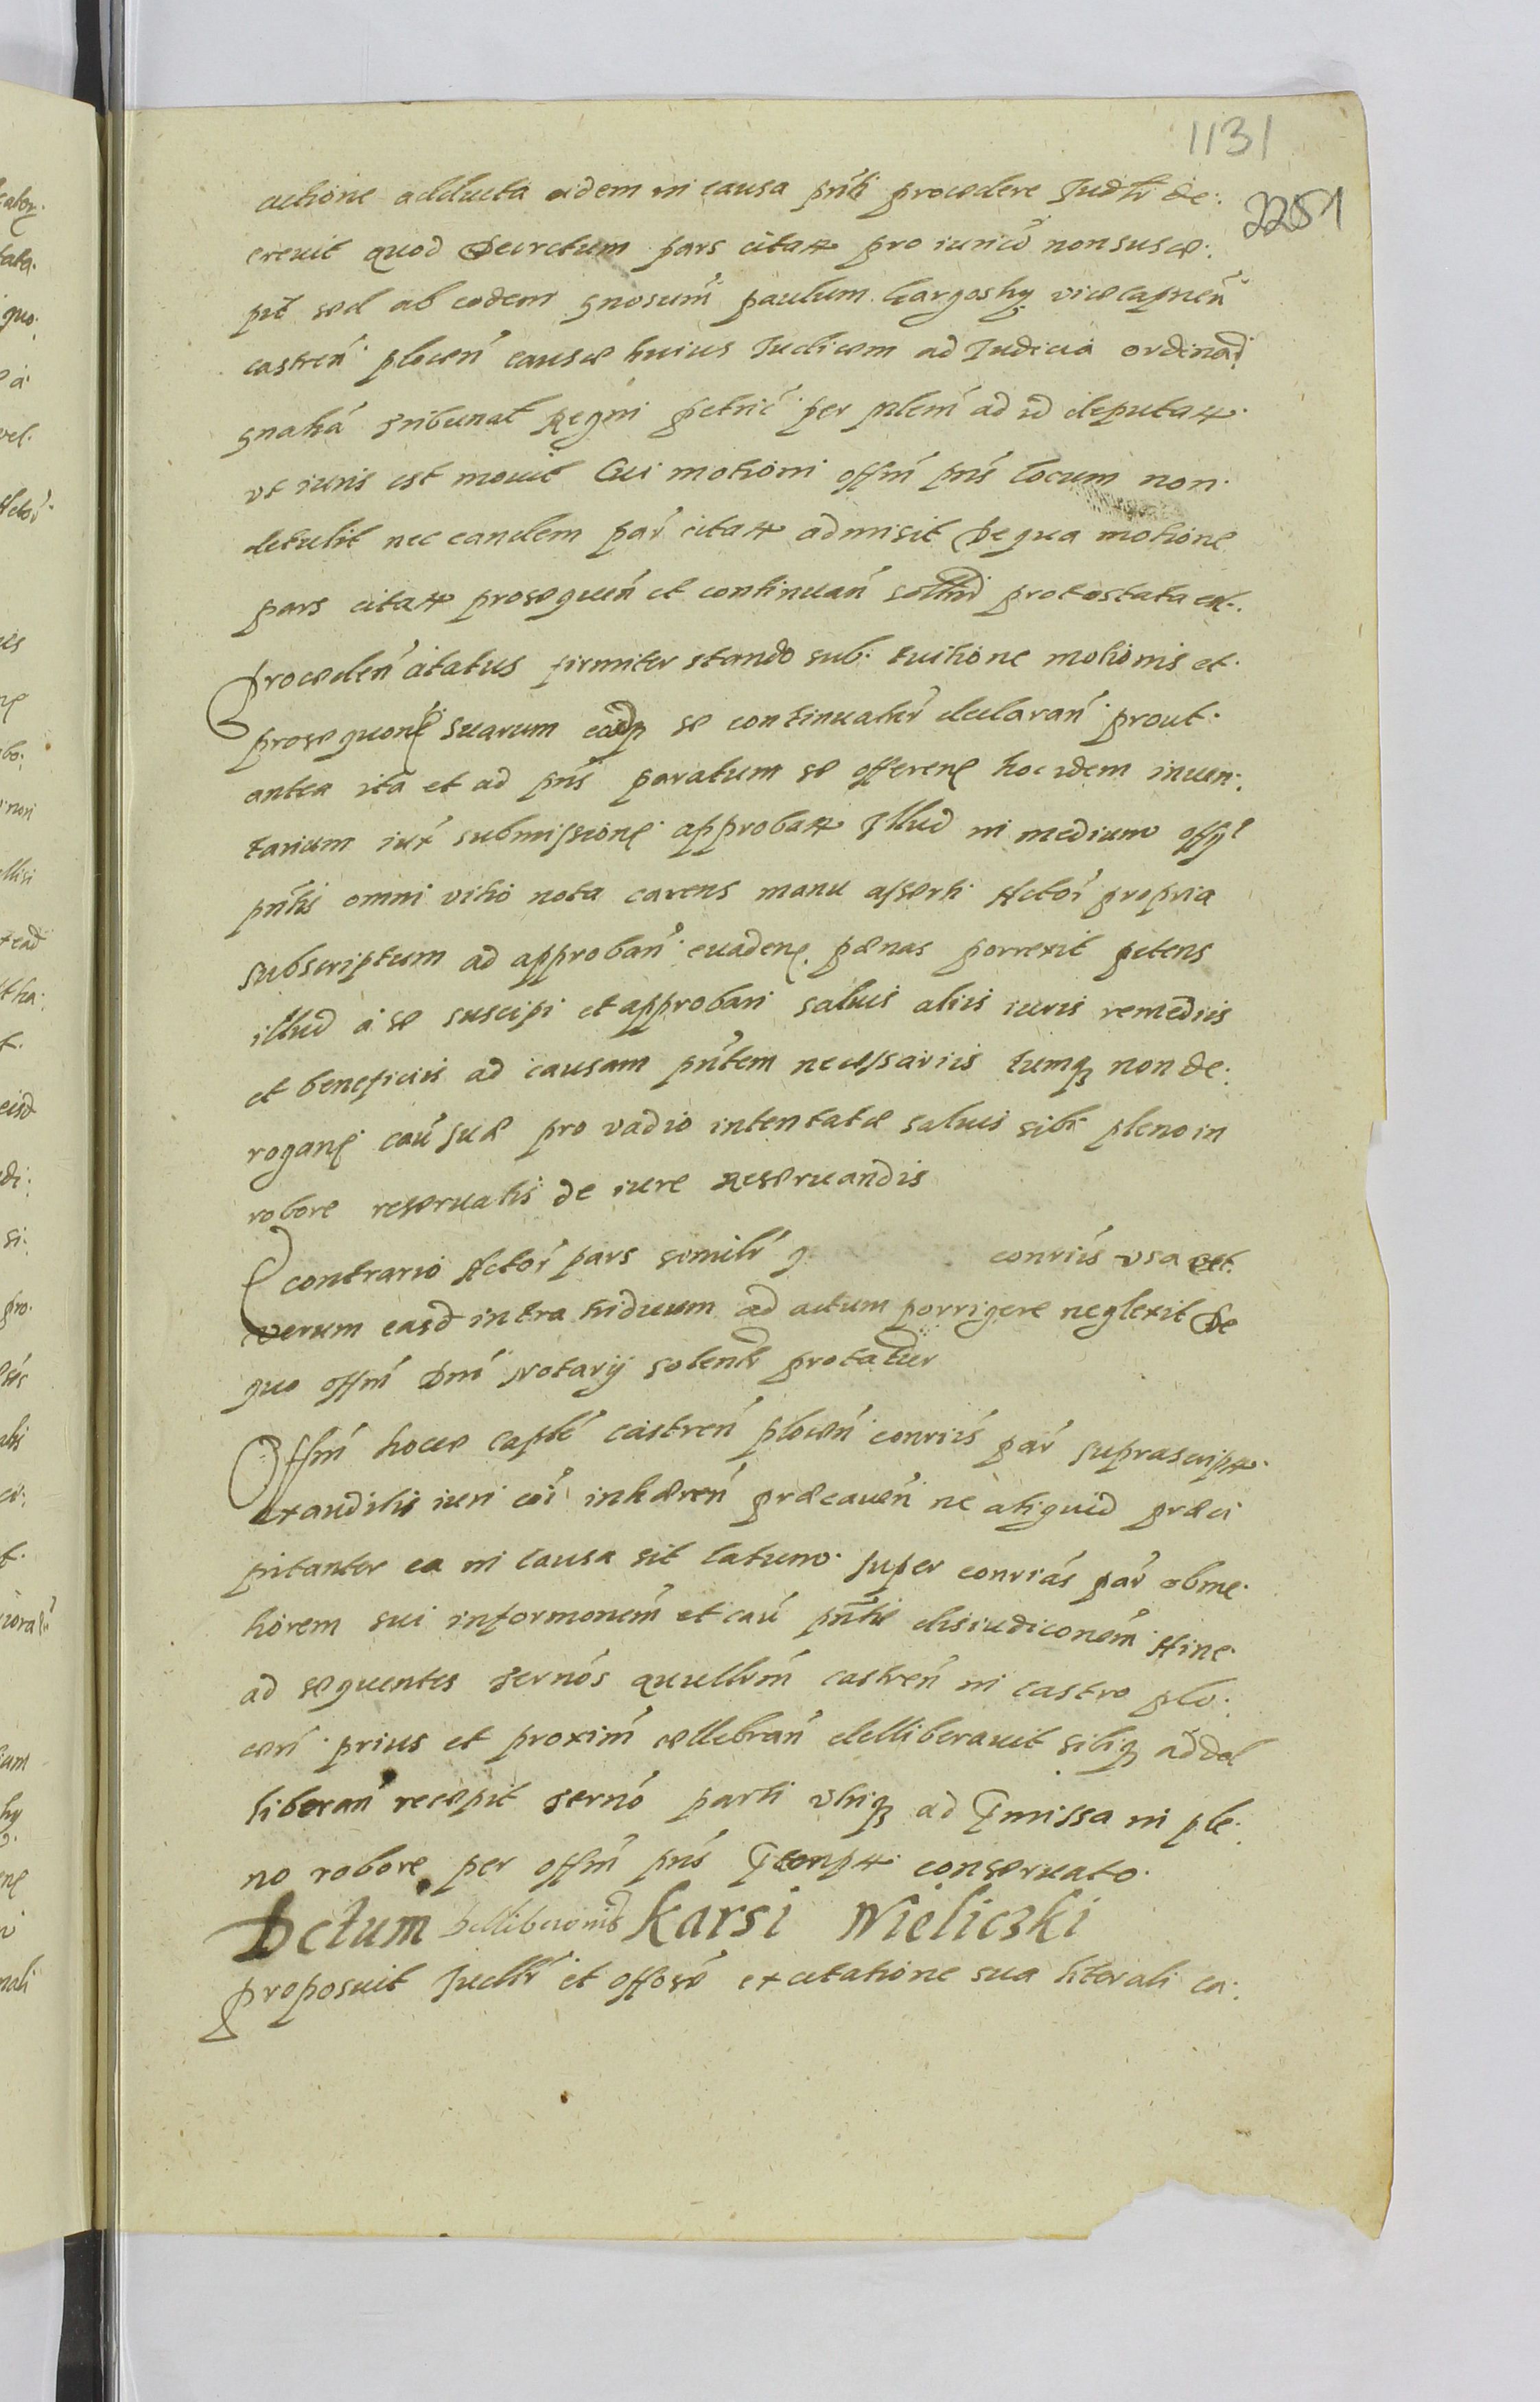 1131
2251
actione adducta eidem in causa pńti procedere Judtr de:
creuit quod Decretum pars citata pro iurico non susce:
pit sed ab eodem gnosum paulum Gargosky vicecapneń
castreń ploceń causæ huius Judicem ad Judicia ordinar
gnalia Tribunal Regni petric per plem ad id deputata
vt iuris est mouit Cui motioni offm pńs locum non
detulit nec eandem par citata admisit De qua motione
pars citata prosequeń et continuań sollnr protestata est.
Proceden citatus firmiter stando sub tuitione motionis et
prosequone suarum easdq se continuatur declarań prout
antea ita et ad pńs paratum se offerene hoc idem inuen:
tarium iux submissione approbata Illud in medium offy
pńtis omni vitio nota carens manu asserti Actor propria
subscriptum ad approbań euadene pænas porrexit petens
illud á se suscipi et approbari saluis aliis iuris remediis
et beneficiis ad causam pńtem necessariis tumq non de:
rogane cau suæ pro vadio intentatæ saluis sibi pleno in
robore reseruatis de iure Reseruandis
E contrario Actor pars similr conriis vsa est.
verum easd intra triduum ad actum porrigere neglexit De
quo offm Dni Notarij solentr protatur
Offm hocce captle castreń ploceń conriis par suprascripta
exauditis iuri coi inhæreń præcaueń ne aliquid præci
pitanter ea in causa sit latum super conrias par obme
liorem sui informonem et cau pńtis disiudiconem Hinc
ad sequentes Termos querellrm castreń in castro plo:
ceń prius et proxim cellebrań delliberauit sibiq ad del
liberań recepit termo parti vtriq ad pmissa in ple
no robore per offm pńs conseruato
Actum Delliberonis Karsi Wieliczki
proposuit Judtr et offose ex citatione sua literali ca: